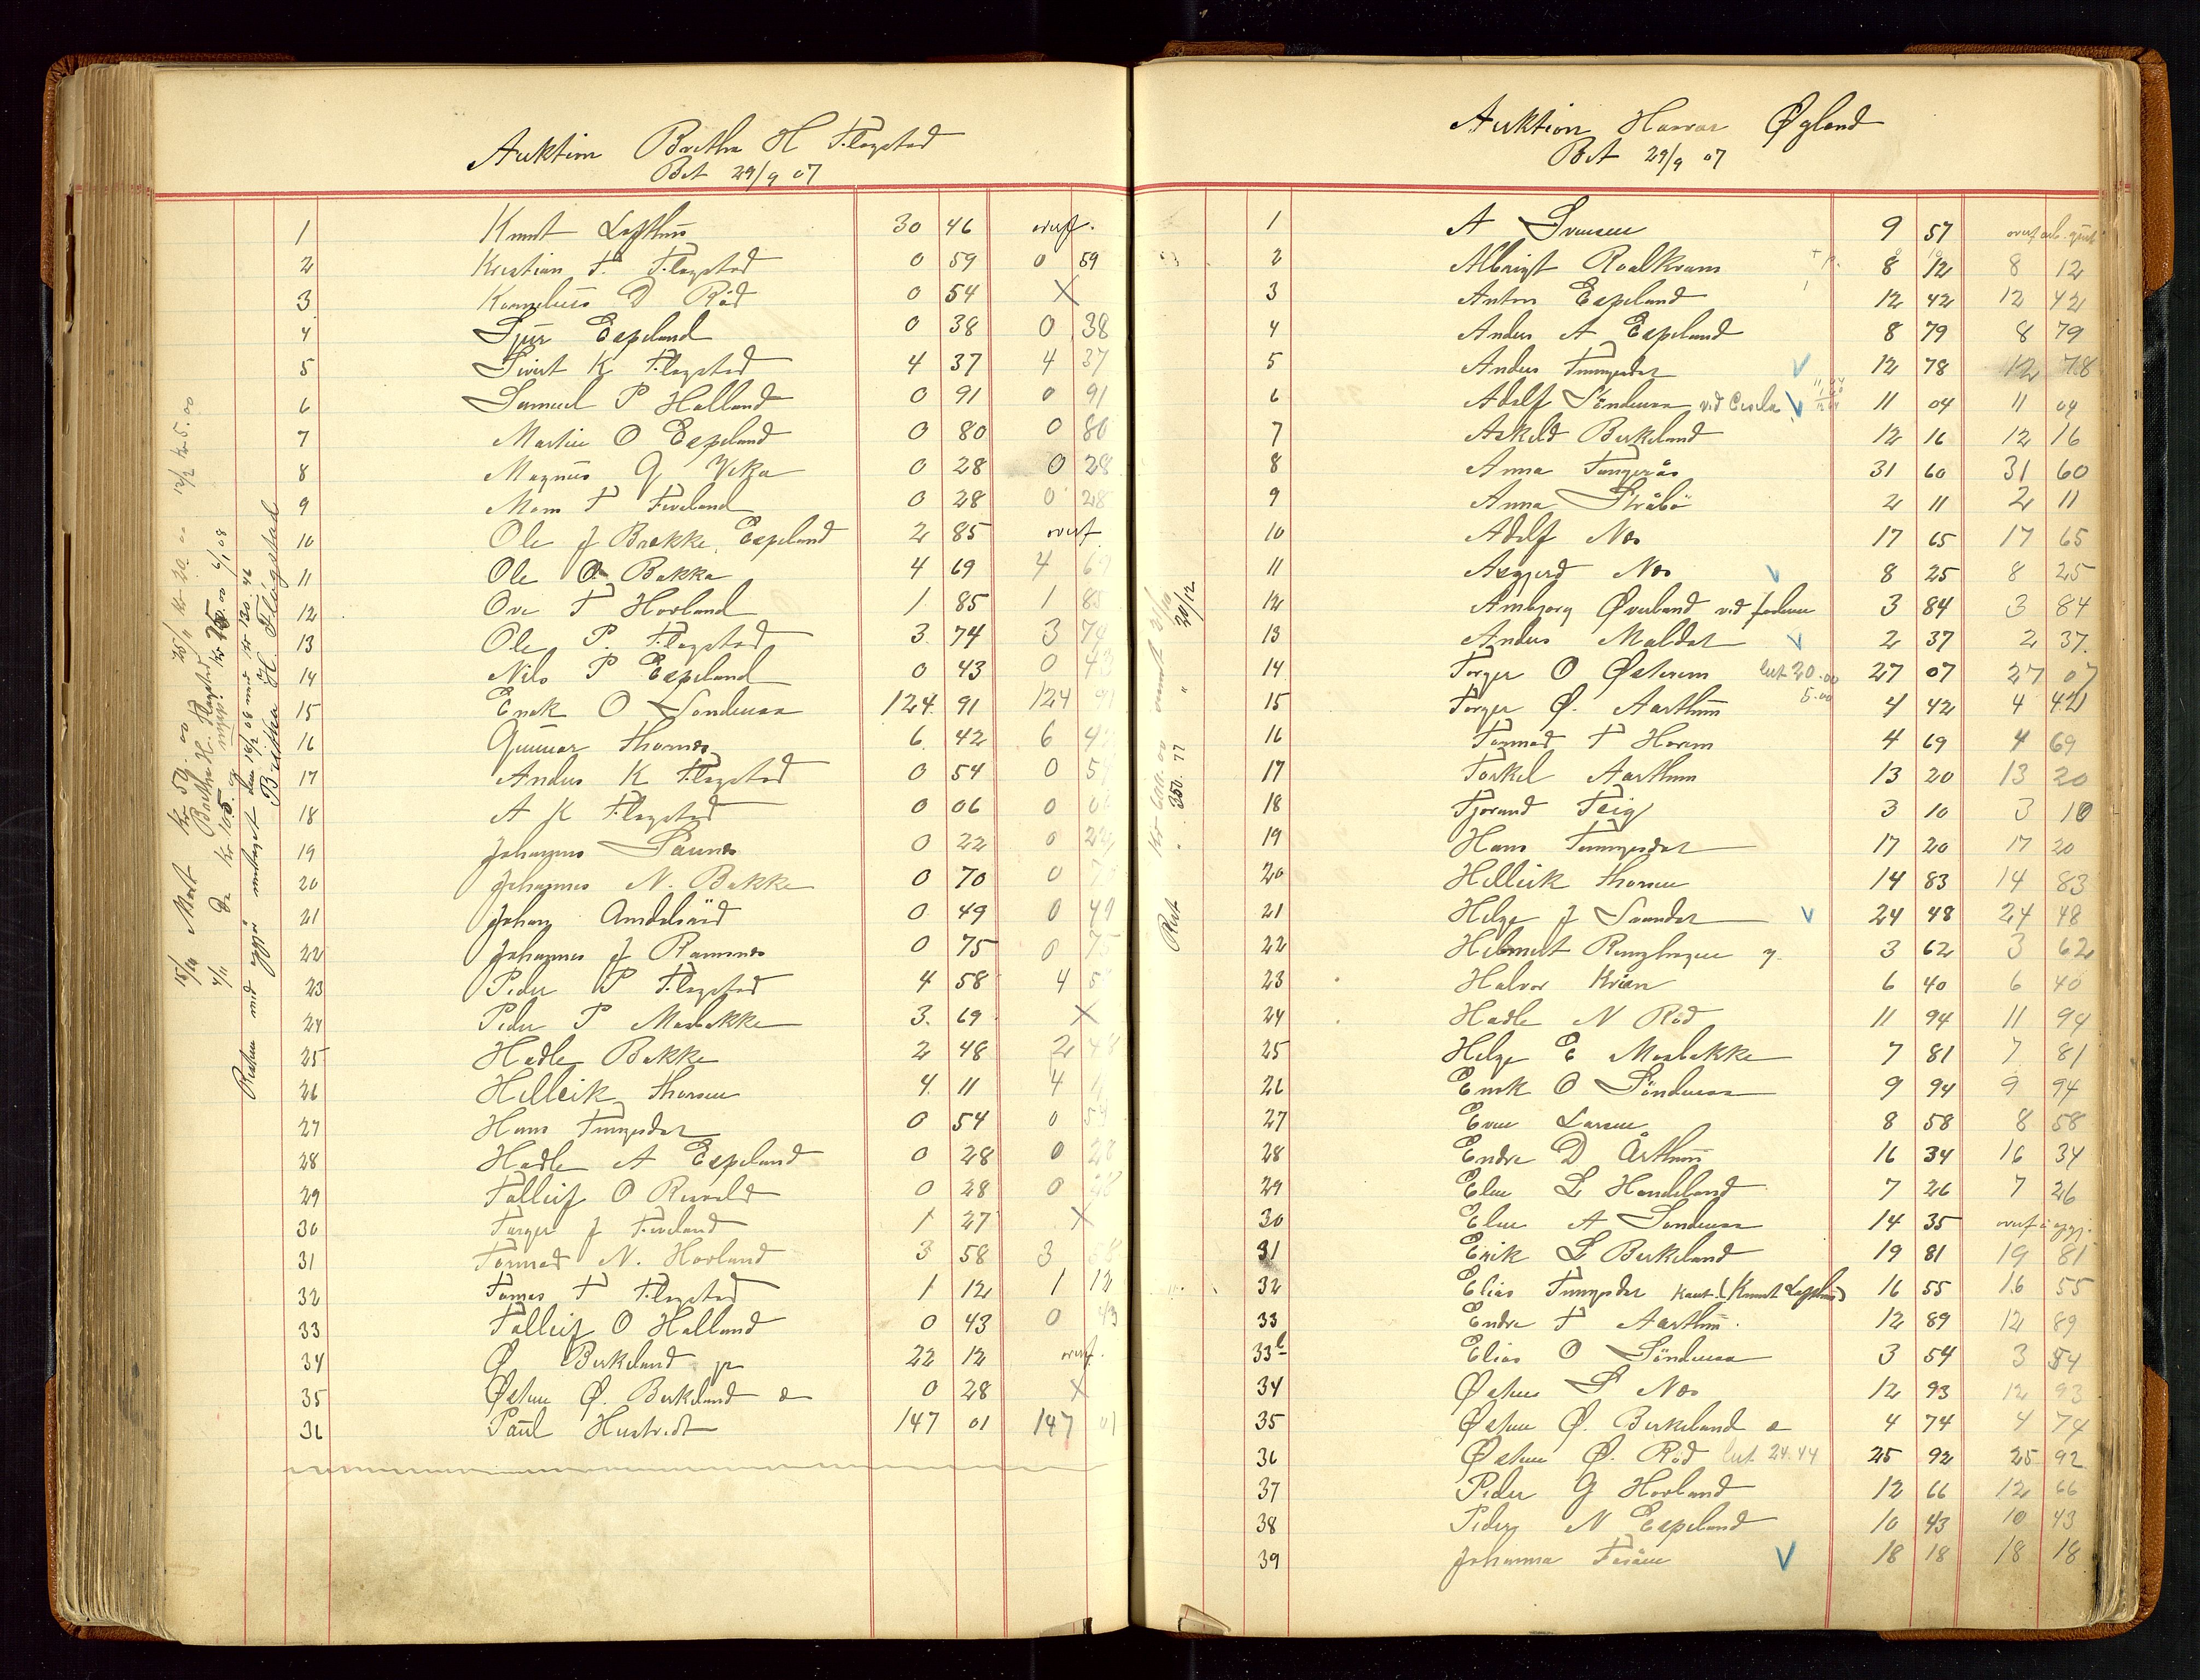 Auktion Berthe H Flogstad
Bet 29/9 07
1 Knut Lofthus 30 46 overf.
2 Kristian T. Flogstad 0 59 0 59
3 Kornelius D Röd 0 54 X
4 Sjur Espeland 0 38 0 38
5 Sivert K Flogstad 4 37 4 37
6 Samuel P Halland 0 91 0 91
7 Martin O Espeland 0 80 0 80
8 Magnus G Vika 0 28 0 28
9 Mons T Fiveland 0 28 0 28
10 Ole J Brekke Espeland 2 85 overf
11 Ole O Bakka 4 69 4 69
12 Ove T Hovland 1 85 1 85
13 Ole P. Flogstad 3 74 3 74
14 Nils P Espeland 0 43 0 43
15 Enok O Söndenaa 124 91 124 91
16 Gunnar Thornes 6 42 6 42
17 Anders K Flogstad 0 54 0 54
18 A K Flogstad 0 06 0 06
19 Johannes Saunes 0 22 0 22
20 Johannes N. Bakke 0 70 0 70
21 Johan Amdalsrud 0 49 0 49
22 Johannes J Ramsnes 0 75 0 75
23 Peder P Flogstad 4 58 4 58
24 Peder P Mosbakke 3 69 X
25 Hadle Bakke 2 48 2 48
26 Helleik Thorsen 4 11 4 11
27 Hans Tungesdal 0 54 0 54
28 Hadle A Espeland 0 28 0 28
29 Tolleif O Rervold 0 28 0 28
30 Torger J Fiveland 1 27 X
31 Tormod N. Hovland 3 58 3 58
32 Tomas T Flogstad 1 12 1 12
33 Tolleif O Halland 0 43 0 43
34 Ø Birkeland jr 22 12 overf.
35 Østen Ø. Birkeland 0 28 X
36 Paul Hustvedt 147 01 147 01
15/10 Mort Kr 50.00 25/11 Kr 20.00 12/12 Kr 5.00
Berthe H. Flogstad
Resten med opgjör mottaget den 18/2 08 med Kr 130.46
Britha H. Flogstad
Auktion Havvar Øgland
Bet 29/9 07
1 A Svensen 9 57
2 Albrigt Roalkvam 8 12 8 12
3 Anton Espeland 12 42 12 42
4 Anders A Espeland 8 79 8 79
5 Anders Tungesdal V 12 78 12 78
6 Adolf Söndenaa V 11 04 11 04
7 Askeld Birkeland 12 16 12 16
8 Anna Tungerås 31 60 31 60
9 Anna Stråbö 2 11 2 11
10 Adolf Nes 17 65 17 65
11 Asgjerd Nes V 8 25 8 25
12 Ambjorg Øverland ved faderen 3 84 3 84
13 Anders Maldal V 2 37 2 37.
14 Torger O Østrem 20.00 27 07 27 07
15 Torger Ø. Aarthun 5.00 4 42 4 42
16 Tormod T Horem 4 69 4 69
17 Torkel Aarthun 13 20 13 20
18 Tjerand Teig 3 10 3 10
19 Hans Tungesdal 17 20 17 20
20 Helleik Thorsen 14 83 14 83
21 Helge J Svandal V 24 48 24 48
22 Helmert Ringhagen 3 62 3 62
23 Halvor Kvien 6 40 6 40
24 Hadle N Röd 11 94 11 94
25 Helge E Mosbakke 7 81 7 81
26 Enok O Söndenaa 9 94 9 94
27 Even Larsen 8 58 8 58
28 Endre D Århus 16 34 16 34
29 Elen L Handeland 7 26 7 26
30 Elen A Söndenaa 14 35
31 Erik L Birkeland 19 81 19 81
32 Elias Tungesdal Kaut. (Knut Lofthus) 16 55 16 55
33 Endre T Aarthun. 12 89 12 89
33b Elias O Söndenaa 3 54 3 54
34 Østen S Nes 12 93 12 93
35 Østen Ø. Birkeland 4 74 4 74
36 Østen Ø. Röd 24.44 25 92 25 92
37 Peder G Hovland 12 66 12 66
38 Peder N Espeland 10 43 10 43
39 Johanna Teråen V 18 18 18 18
Rest 350.77 20/12